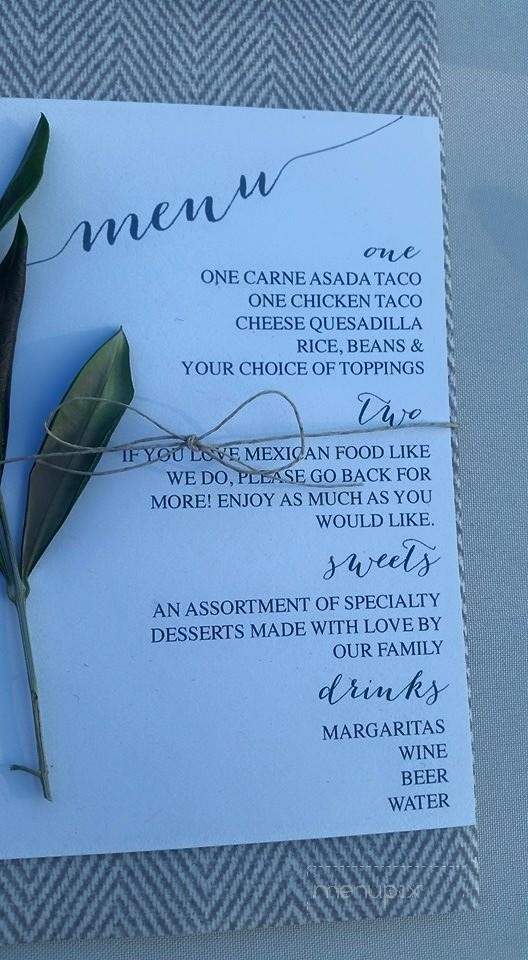 menu
one
ONE CARNE ASADA TACO
ONE CHICKEN TACO
CHEESE QUESADILLA
RICE, BEANS &
YOUR CHOICE OF TOPPINGS
two
IF YOU LOVE MEXICAN FOOD LIKE
WE DO, PLEASE GO BACK FOR
MORE! ENJOY AS MUCH AS YOU
WOULD LIKE.
sweets
AN ASSORTMENT OF SPECIALTY
DESSERTS MADE WITH LOVE BY
OUR FAMILY
drinks
MARGARITAS
WINE
BEER
WATER
menupix